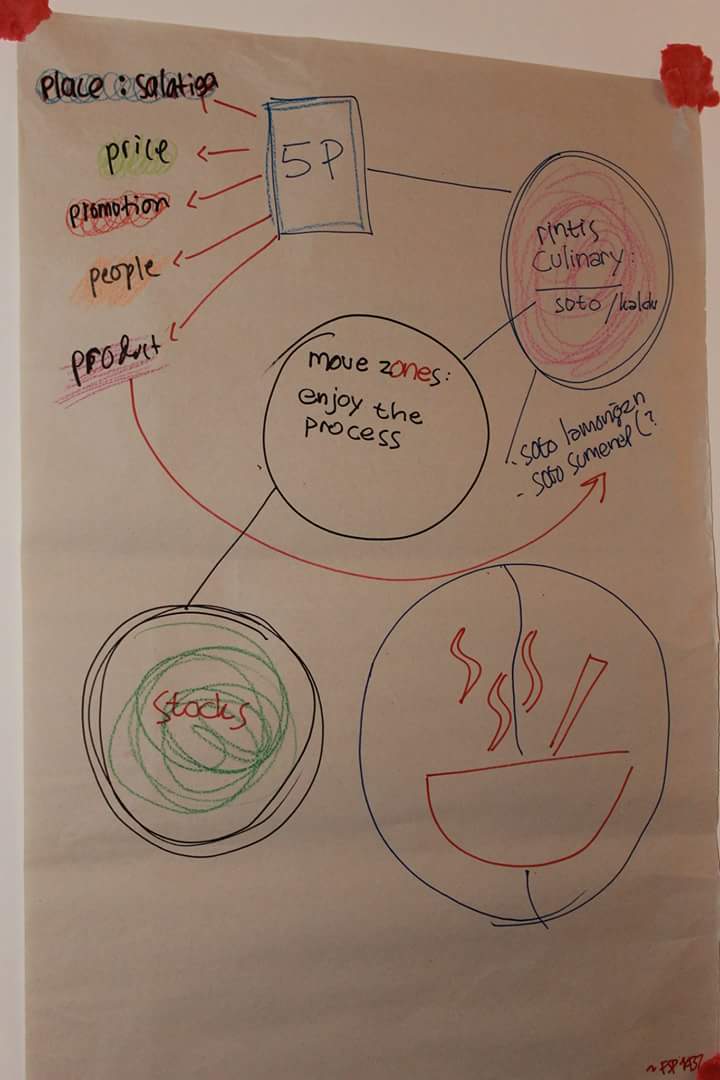 place : salatiga
5P
price
promotion
people
product
rintis
culinary :
soto / kaldu
move zones:
enjoy the
process
- soto lamongan
- soto sumenep (?
stocks